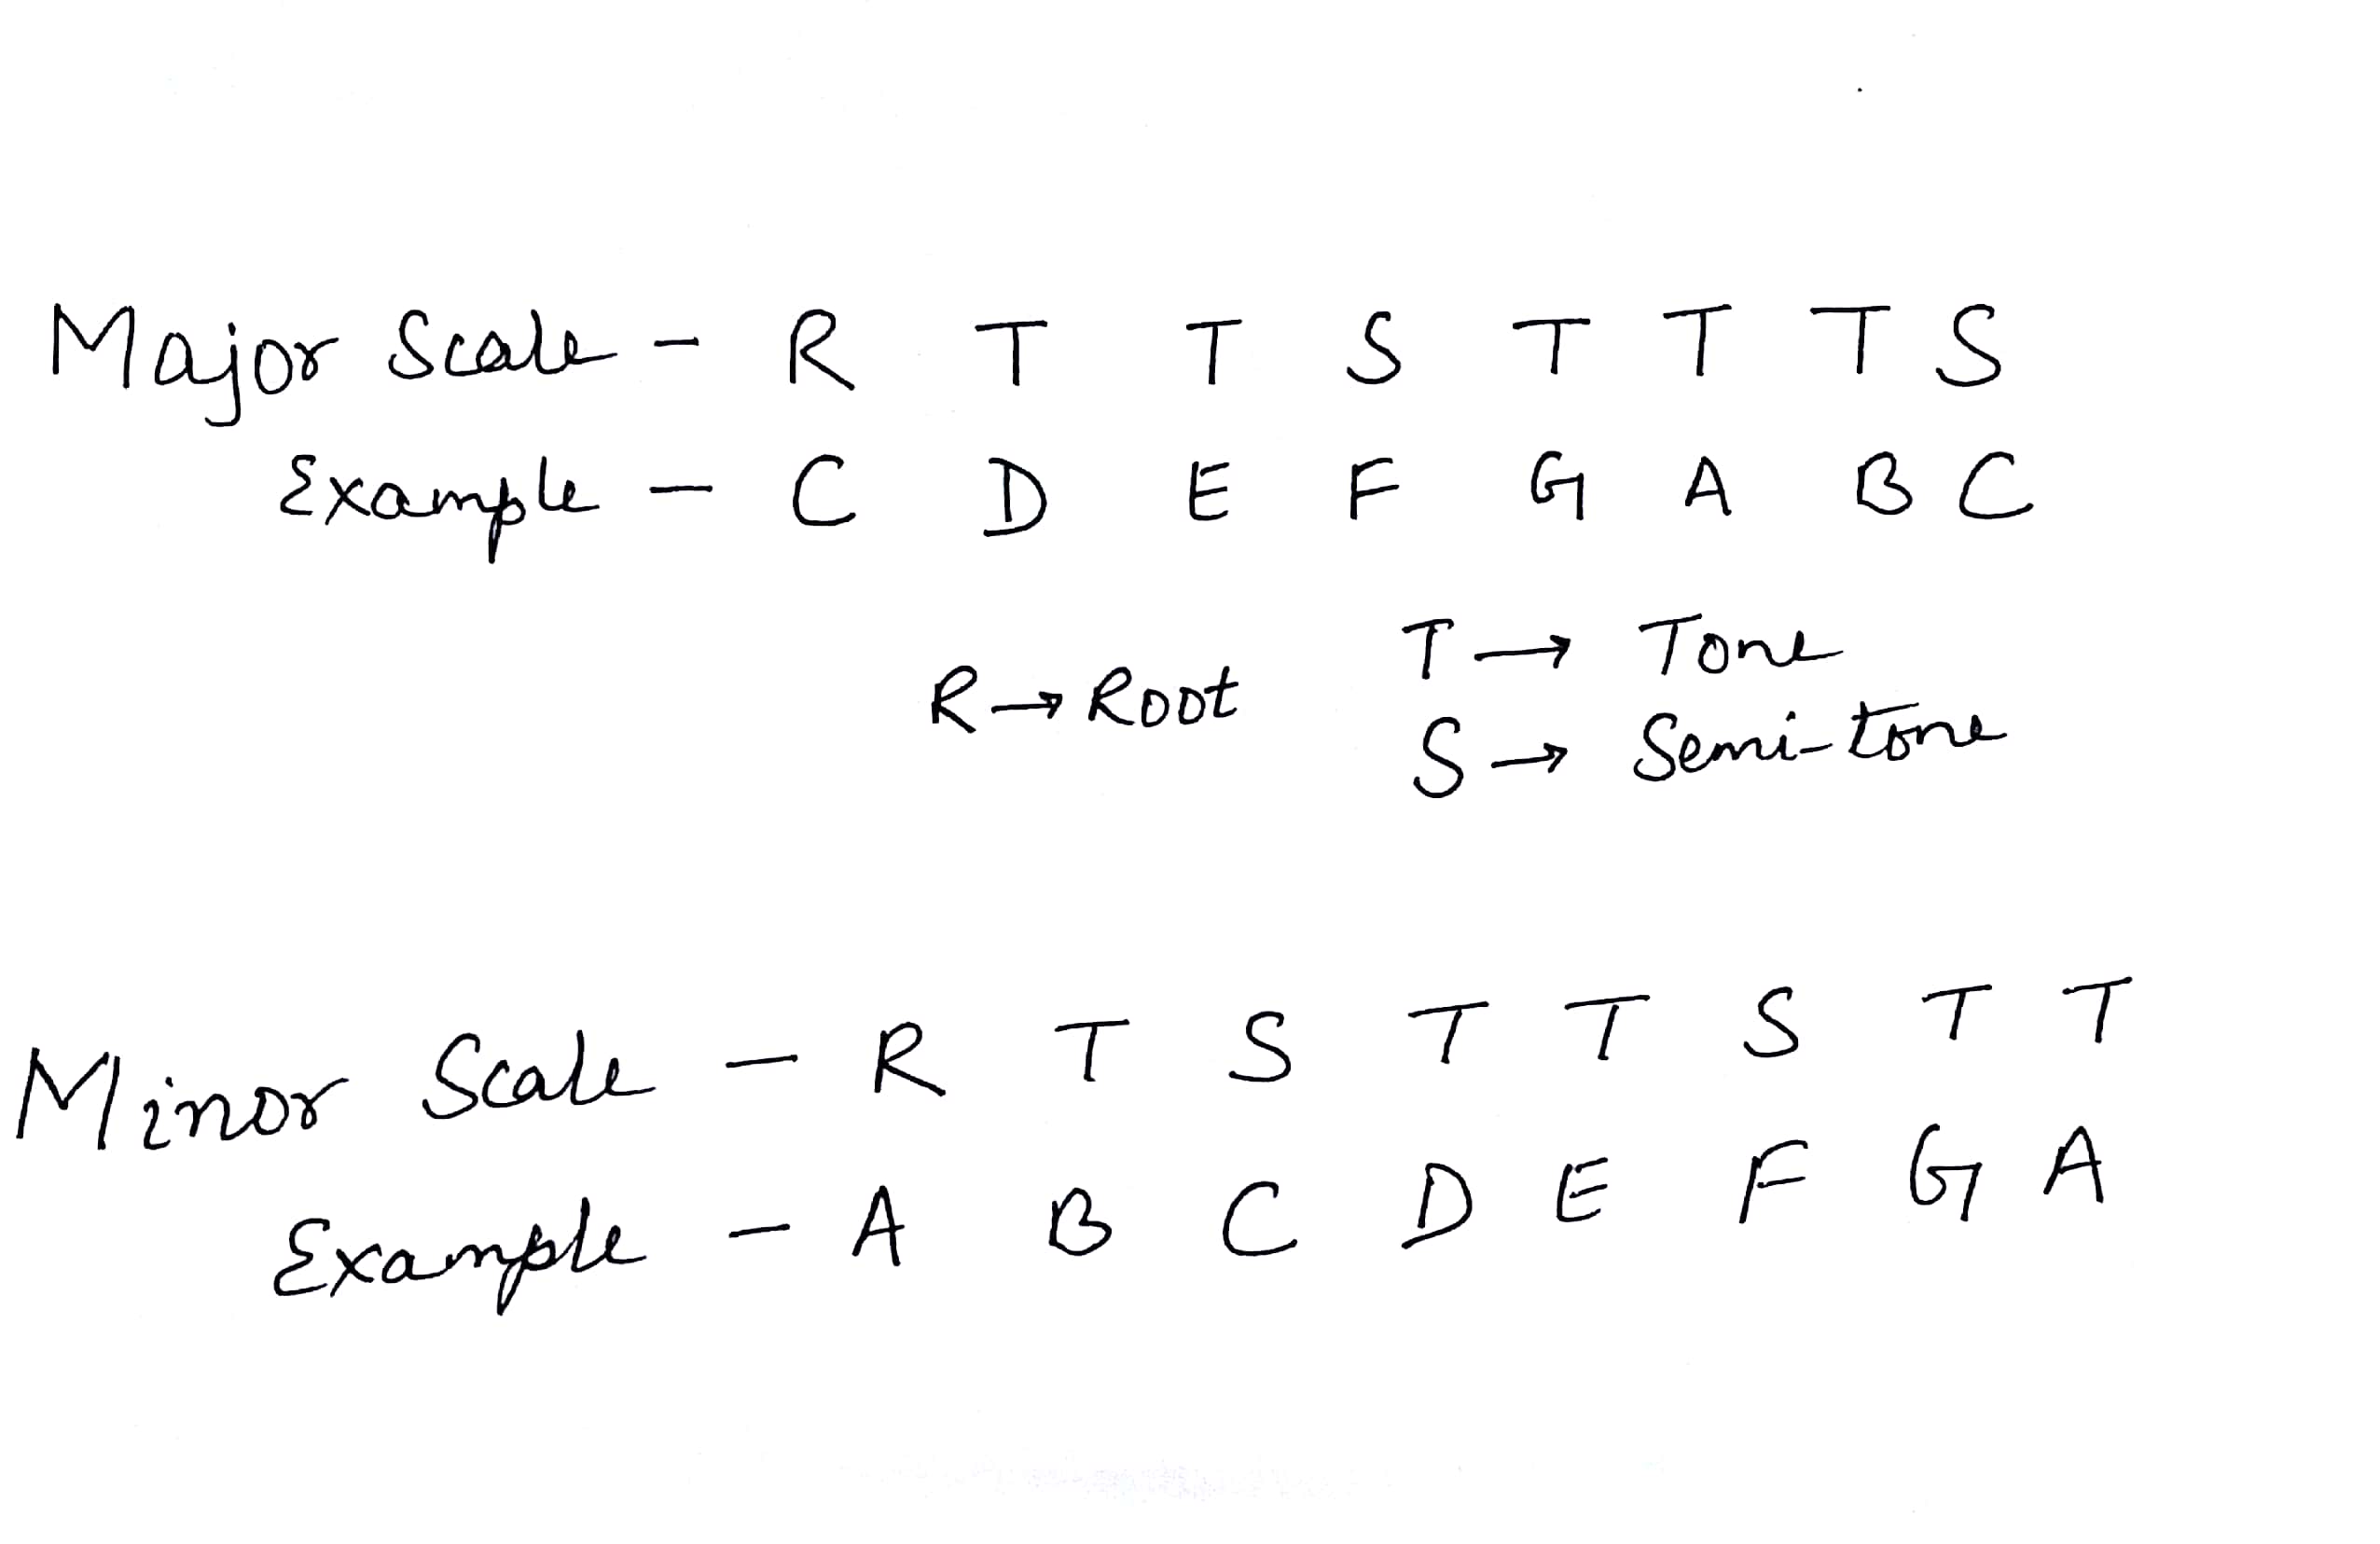 Major Scale - R T T S T T T S
Example - C D E F G A B C
T → Tone
R → Root
S → Semi-tone
Minor Scale - R T S T T S T T
Example - A B C D E F G A